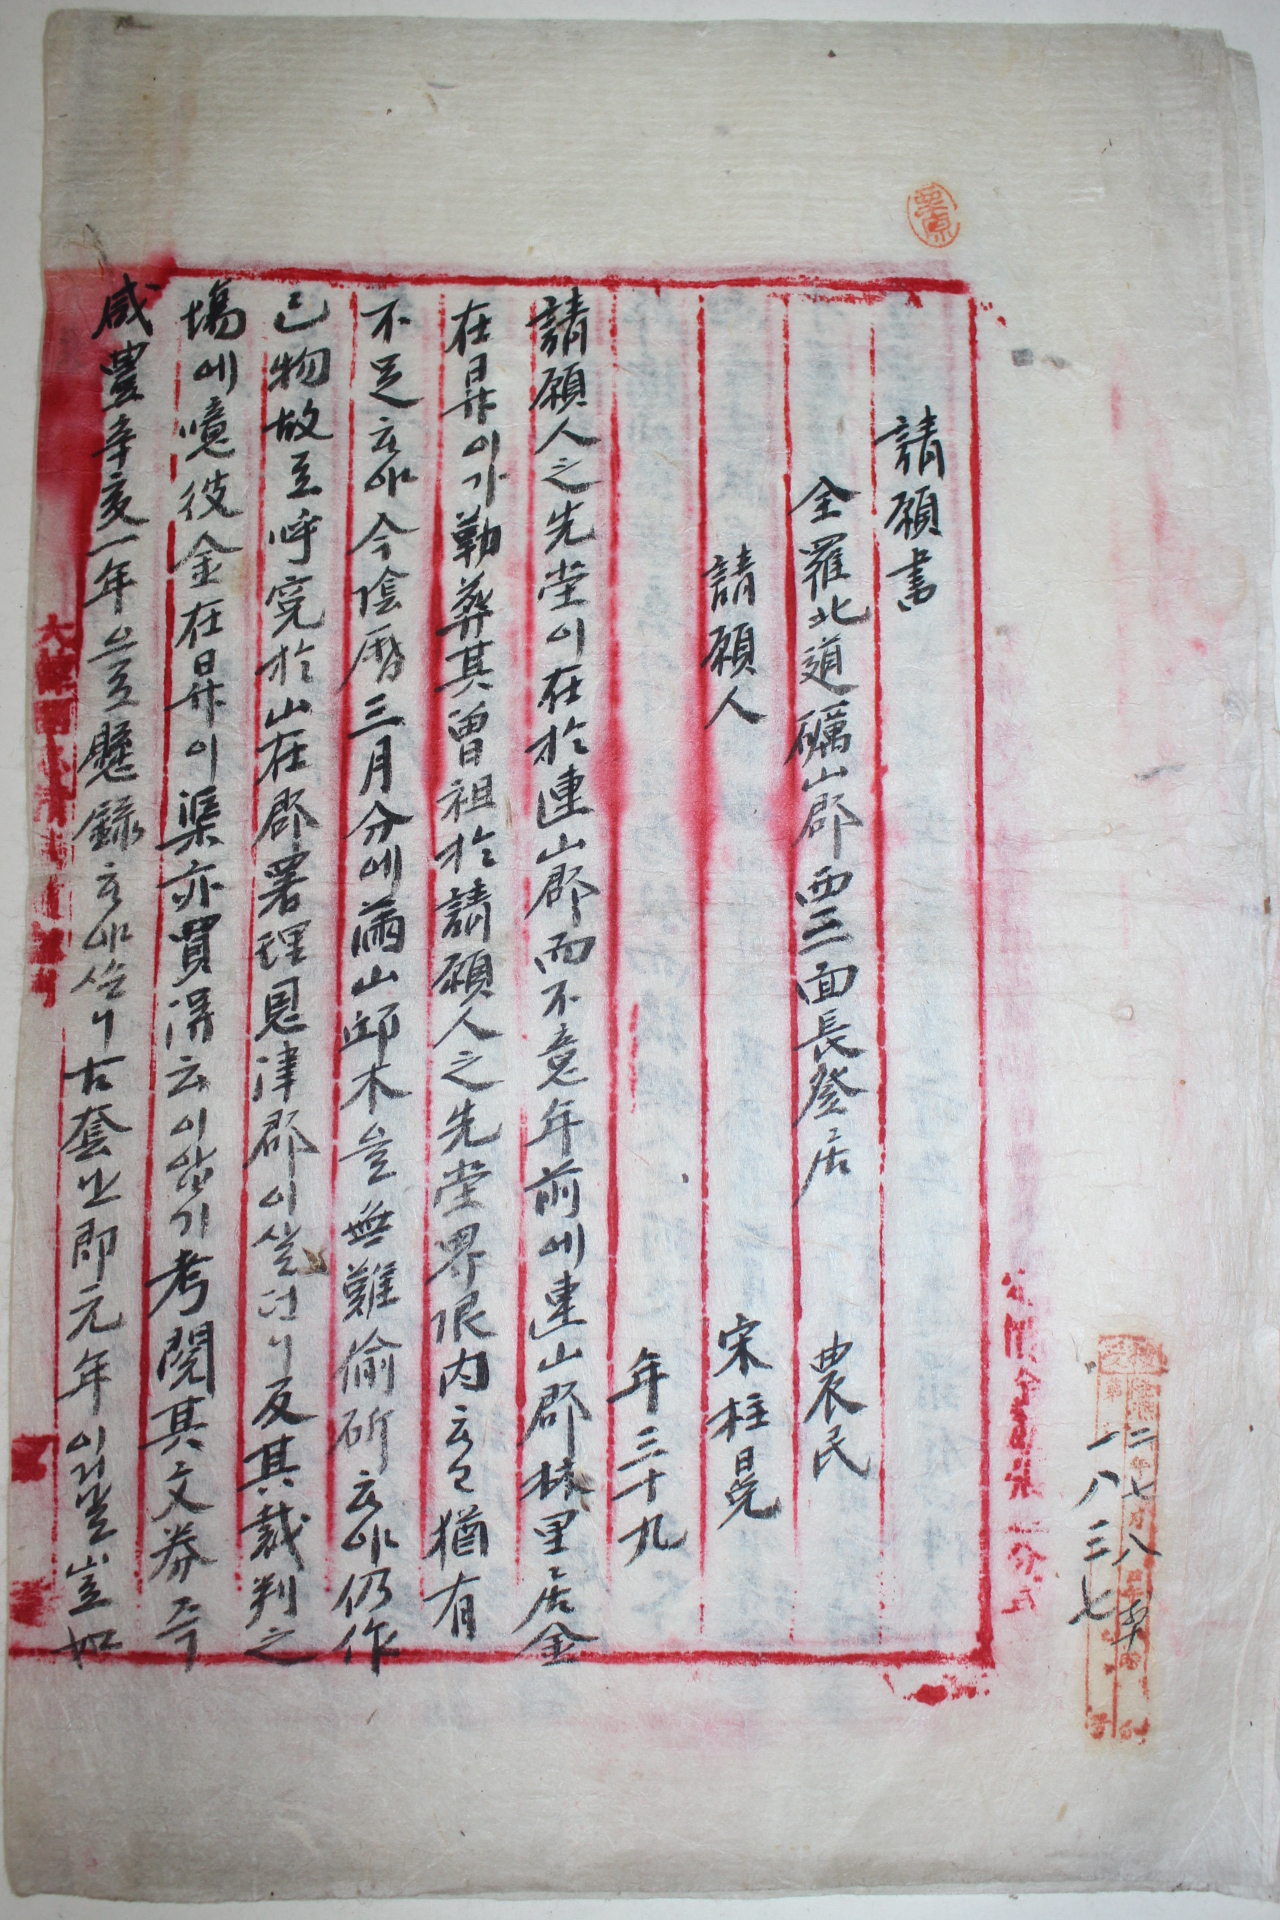 請願書
全羅北道礪山郡西三面長登居 農民
請願人 宋柱晃
年三十九
請願人之先塋이在於連山郡而不意年前에連山郡林里居金
在昇이가勒葬其曾祖於請願人之先塋界限內云云猶有
不足云야今陰曆三月分에滿山邱木을無難偷斫云야仍作
己物故로呼寃於山在郡署理恩津郡이더니反其裁判之
場에噫彼金在昇이渠亦買得云이압기考閱其文券즉
咸豊辛亥一年으로懸錄云야스니古套난卽元年이건을豈如
栗原
二年七月八
一八三七